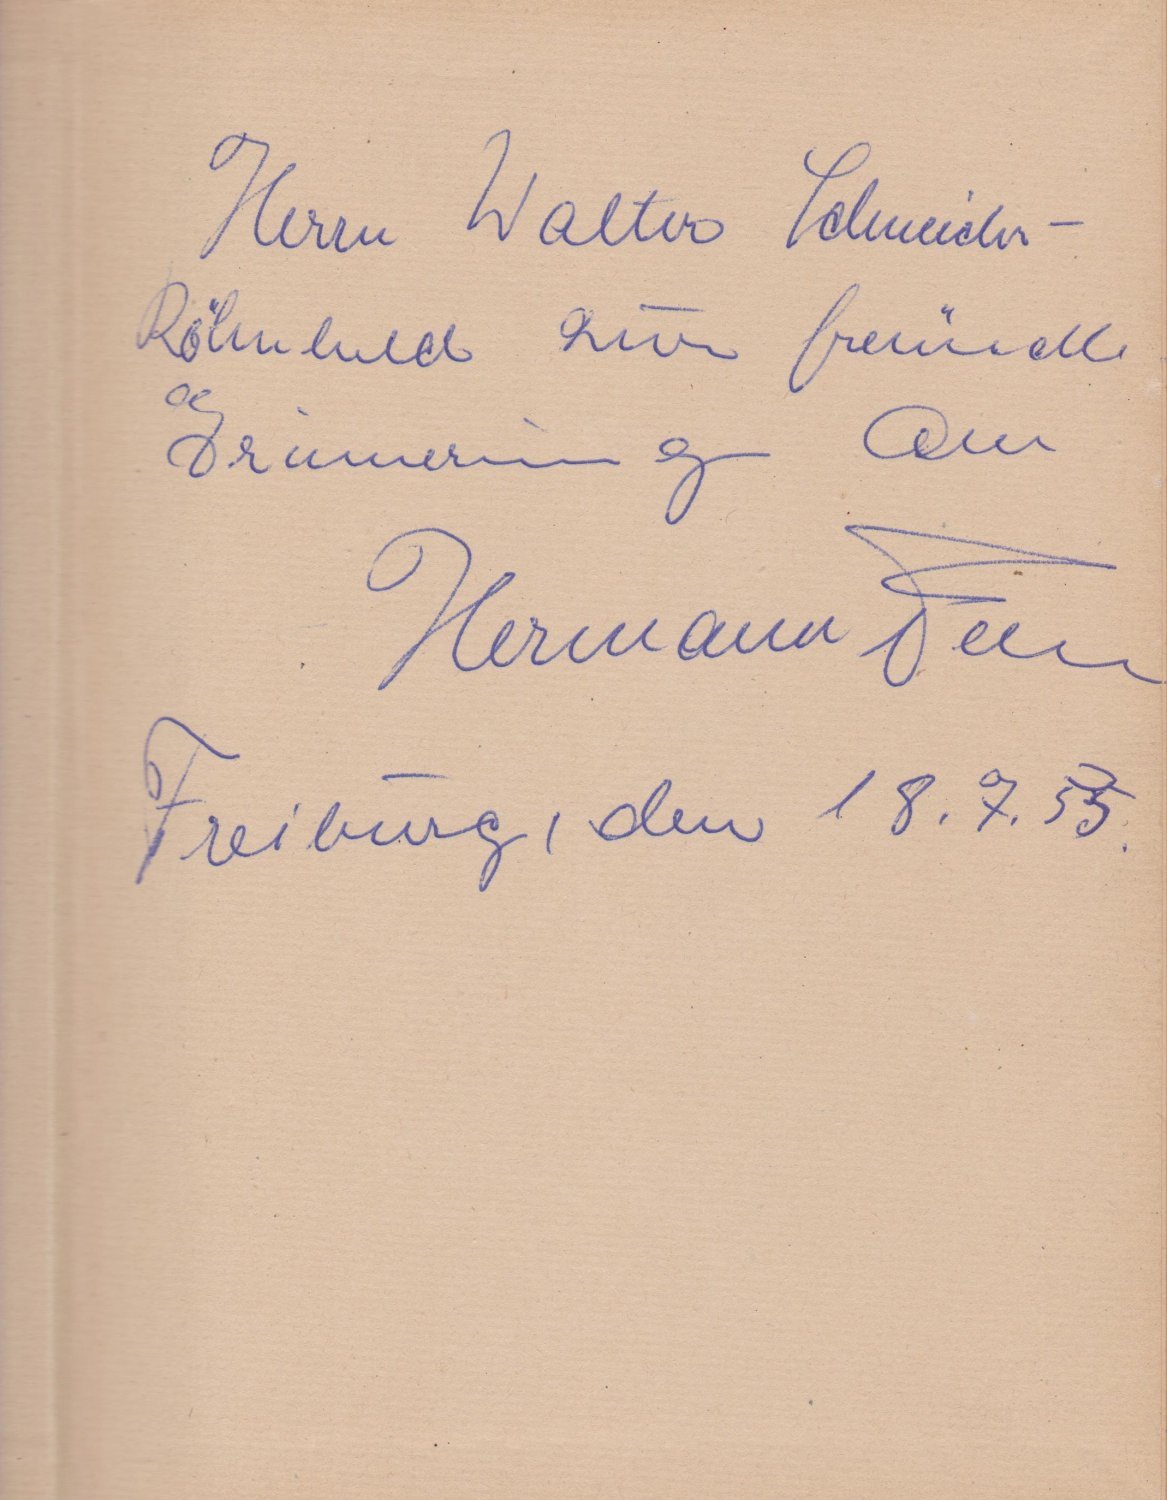 Herrn Walter Schneider-
Römhild zur freundl
Erinnerung an
Hermann
Freiburg, den 18.7.55.